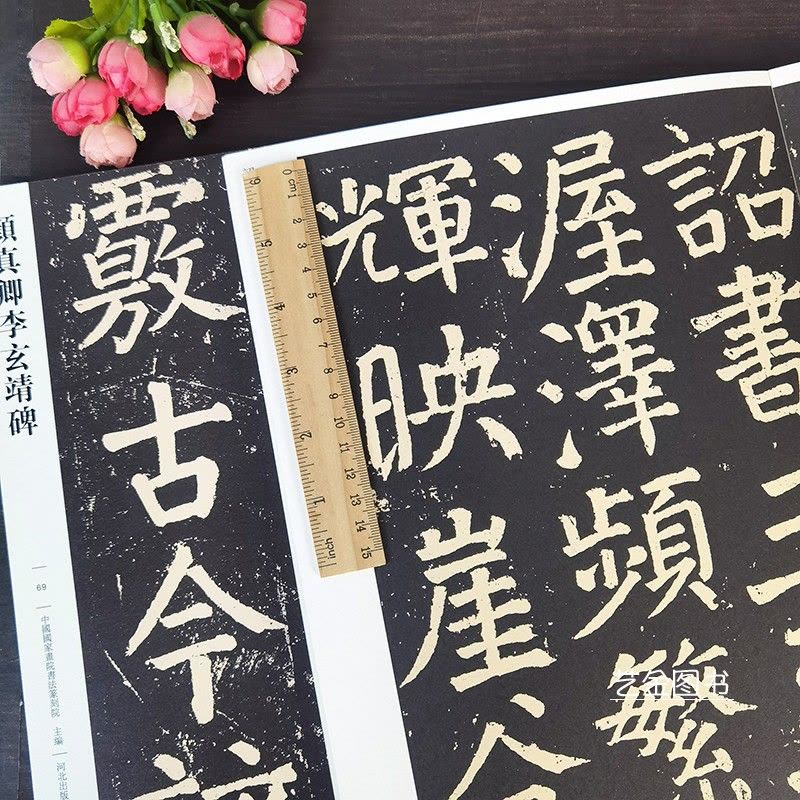 詔書
渥澤頻繁
輝映崖谷
覈古今
顏真卿李玄靖碑
69
中國國家畫院書法篆刻院 主編
河北出版
0 cm 1 2 3 4 5 6 7 8 9 10 11 12 13 14 15
inch 1 2 3 4 5 6
图书